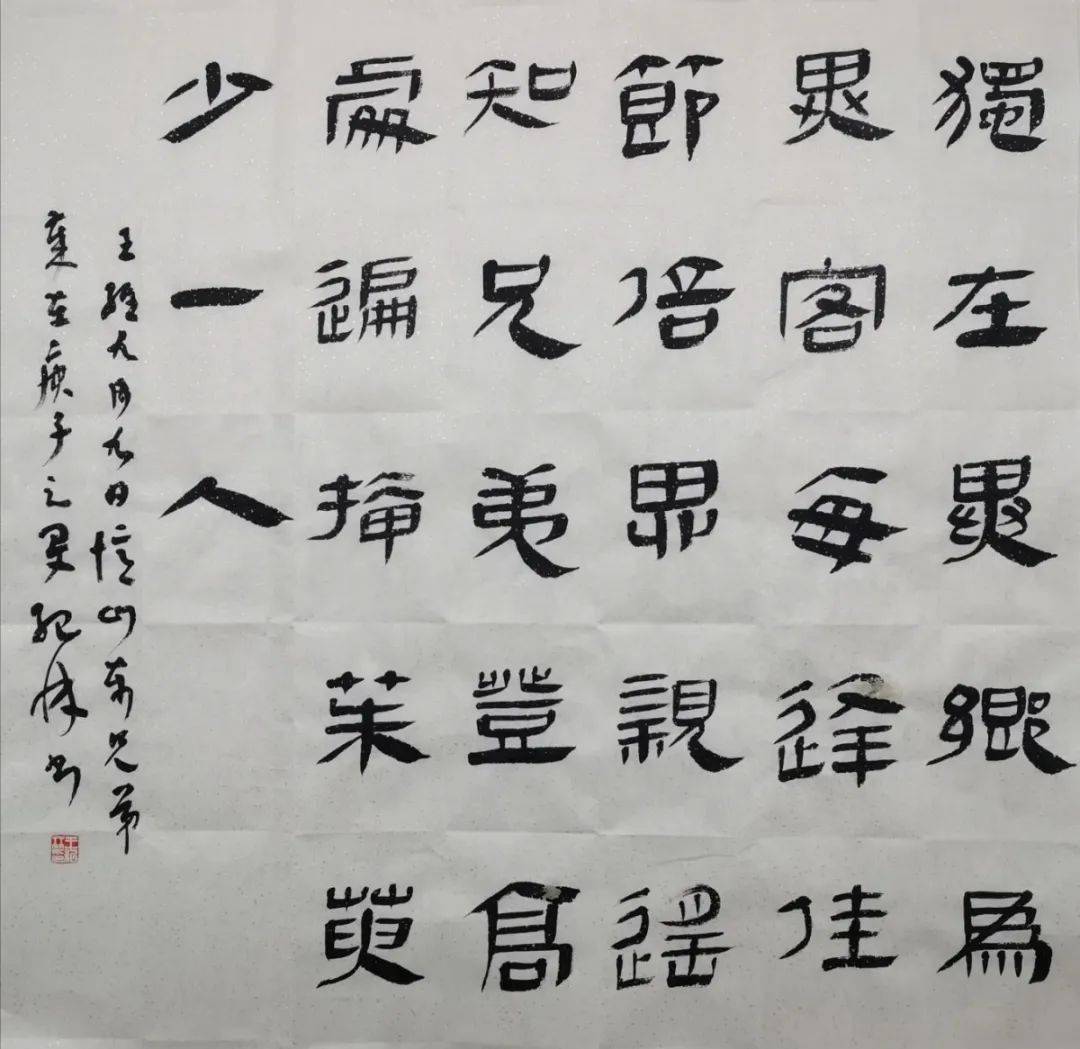 獨在異鄉為
異客每逢佳
節倍思親遙
知兄弟登高
處遍插茱萸
少一人
王維九月九日憶山東兄弟
歲在庚子之夏